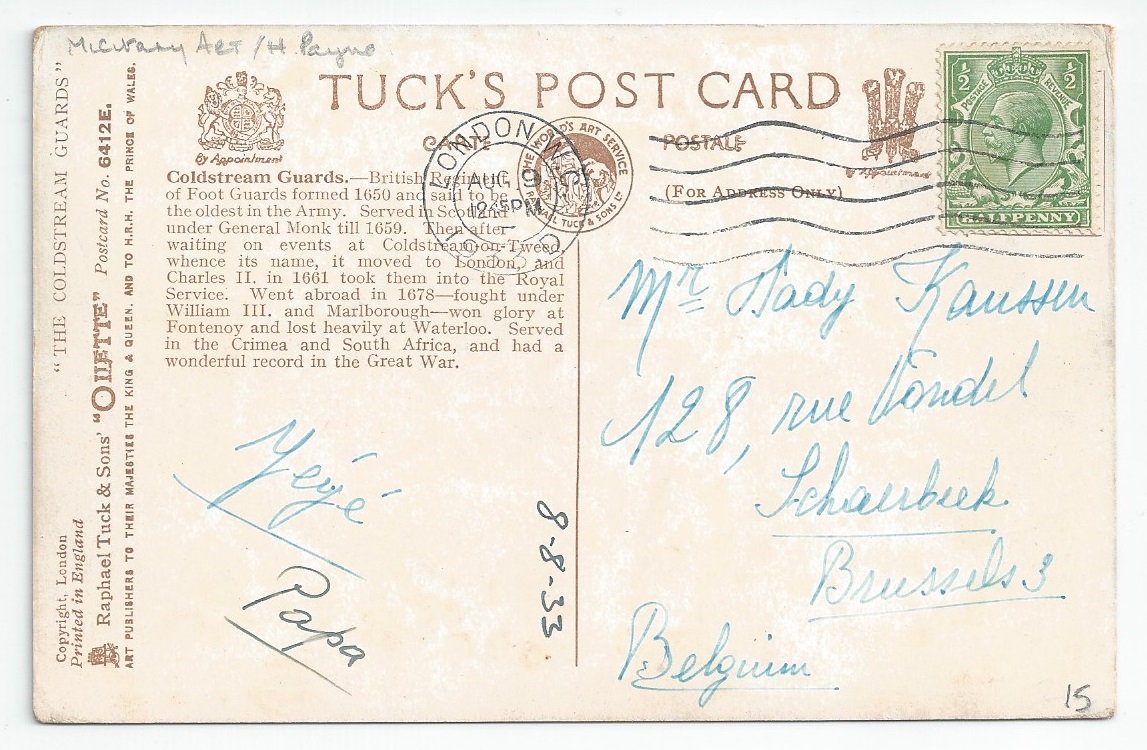 Military Art / H. Payne
TUCK'S POST CARD
By Appointment
By Appointment
THE WORLD'S ART SERVICE
RAPHAEL TUCK & SONS Lᵀᴰ
LONDON
AUG
1245PM
POSTAGE REVENUE
½ ½
HALFPENNY
(FOR ADDRESS ONLY)
Coldstream Guards.—British Regiment
of Foot Guards formed 1650 and said to be
the oldest in the Army. Served in Scotland
under General Monk till 1659. Then after
waiting on events at Coldstream-on-Tweed,
whence its name, it moved to London, and
Charles II. in 1661 took them into the Royal
Service. Went abroad in 1678—fought under
William III. and Marlborough—won glory at
Fontenoy and lost heavily at Waterloo. Served
in the Crimea and South Africa, and had a
wonderful record in the Great War.
"THE COLDSTREAM GUARDS"
Raphael Tuck & Sons' "OILETTE" Postcard No. 6412E.
ART PUBLISHERS TO THEIR MAJESTIES THE KING & QUEEN, AND TO H.R.H. THE PRINCE OF WALES.
Copyright, London
Printed in England
Papa
8-8-33
Mr Kaussen
128, rue Vondel
Schaerbeek
Brussels 3
Belgium
15